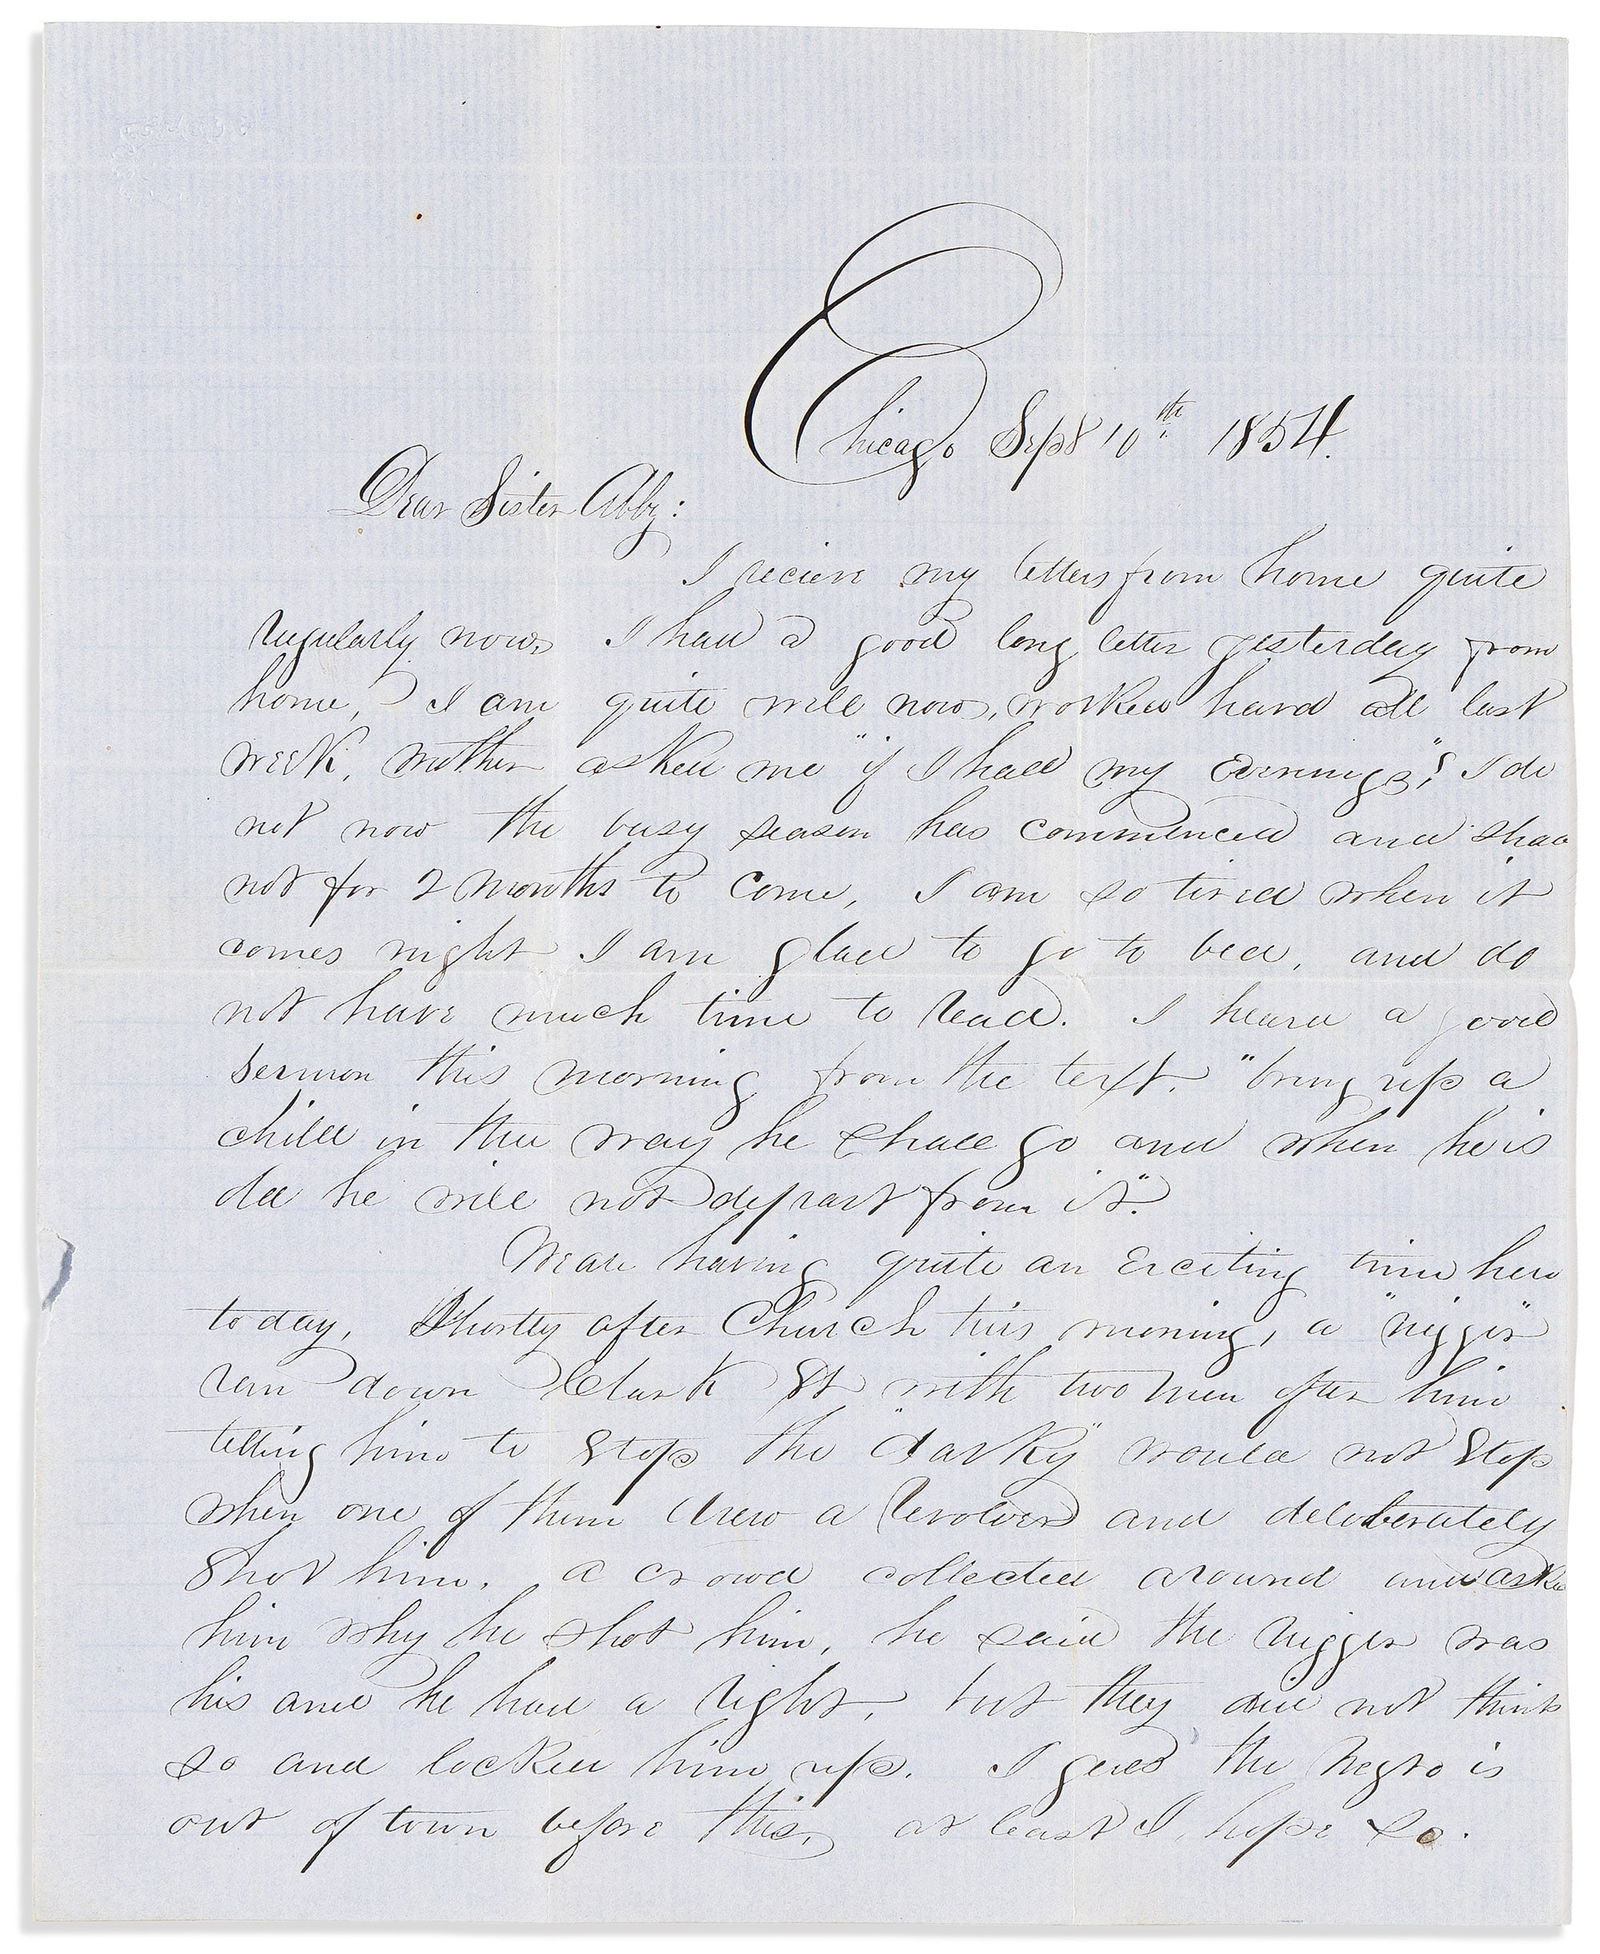 Chicago Sept 10th 1854.
Dear Sister Abby:
I recieve my letters from home quite
regularly now, I had a good long letter yesterday from
home, I am quite well now, worked hard all last
week, mother asked me "if I had my Evenings"? I do
not now the busy season has commenced and shall
not for 2 months to come, I am so tired when it
comes night I am glad to go to bed, and do
not have much time to read. I heard a good
sermon this morning from the text, "bring up a
child in the way he shall go and when he is
old he will not depart from it".
We are having quite an Exciting time here
to day, Shortly after Church this morning, a "nigger"
ran down Clark St with two men after him
telling him to stop the "darky" would not stop
when one of them drew a revolver and deliberately
shot him. a crowd collected around and asked
him why he shot him, he said the nigger was
his and he had a right, but they did not think
so and locked him up. I guess the Negro is
out of town before this, at least I hope so.